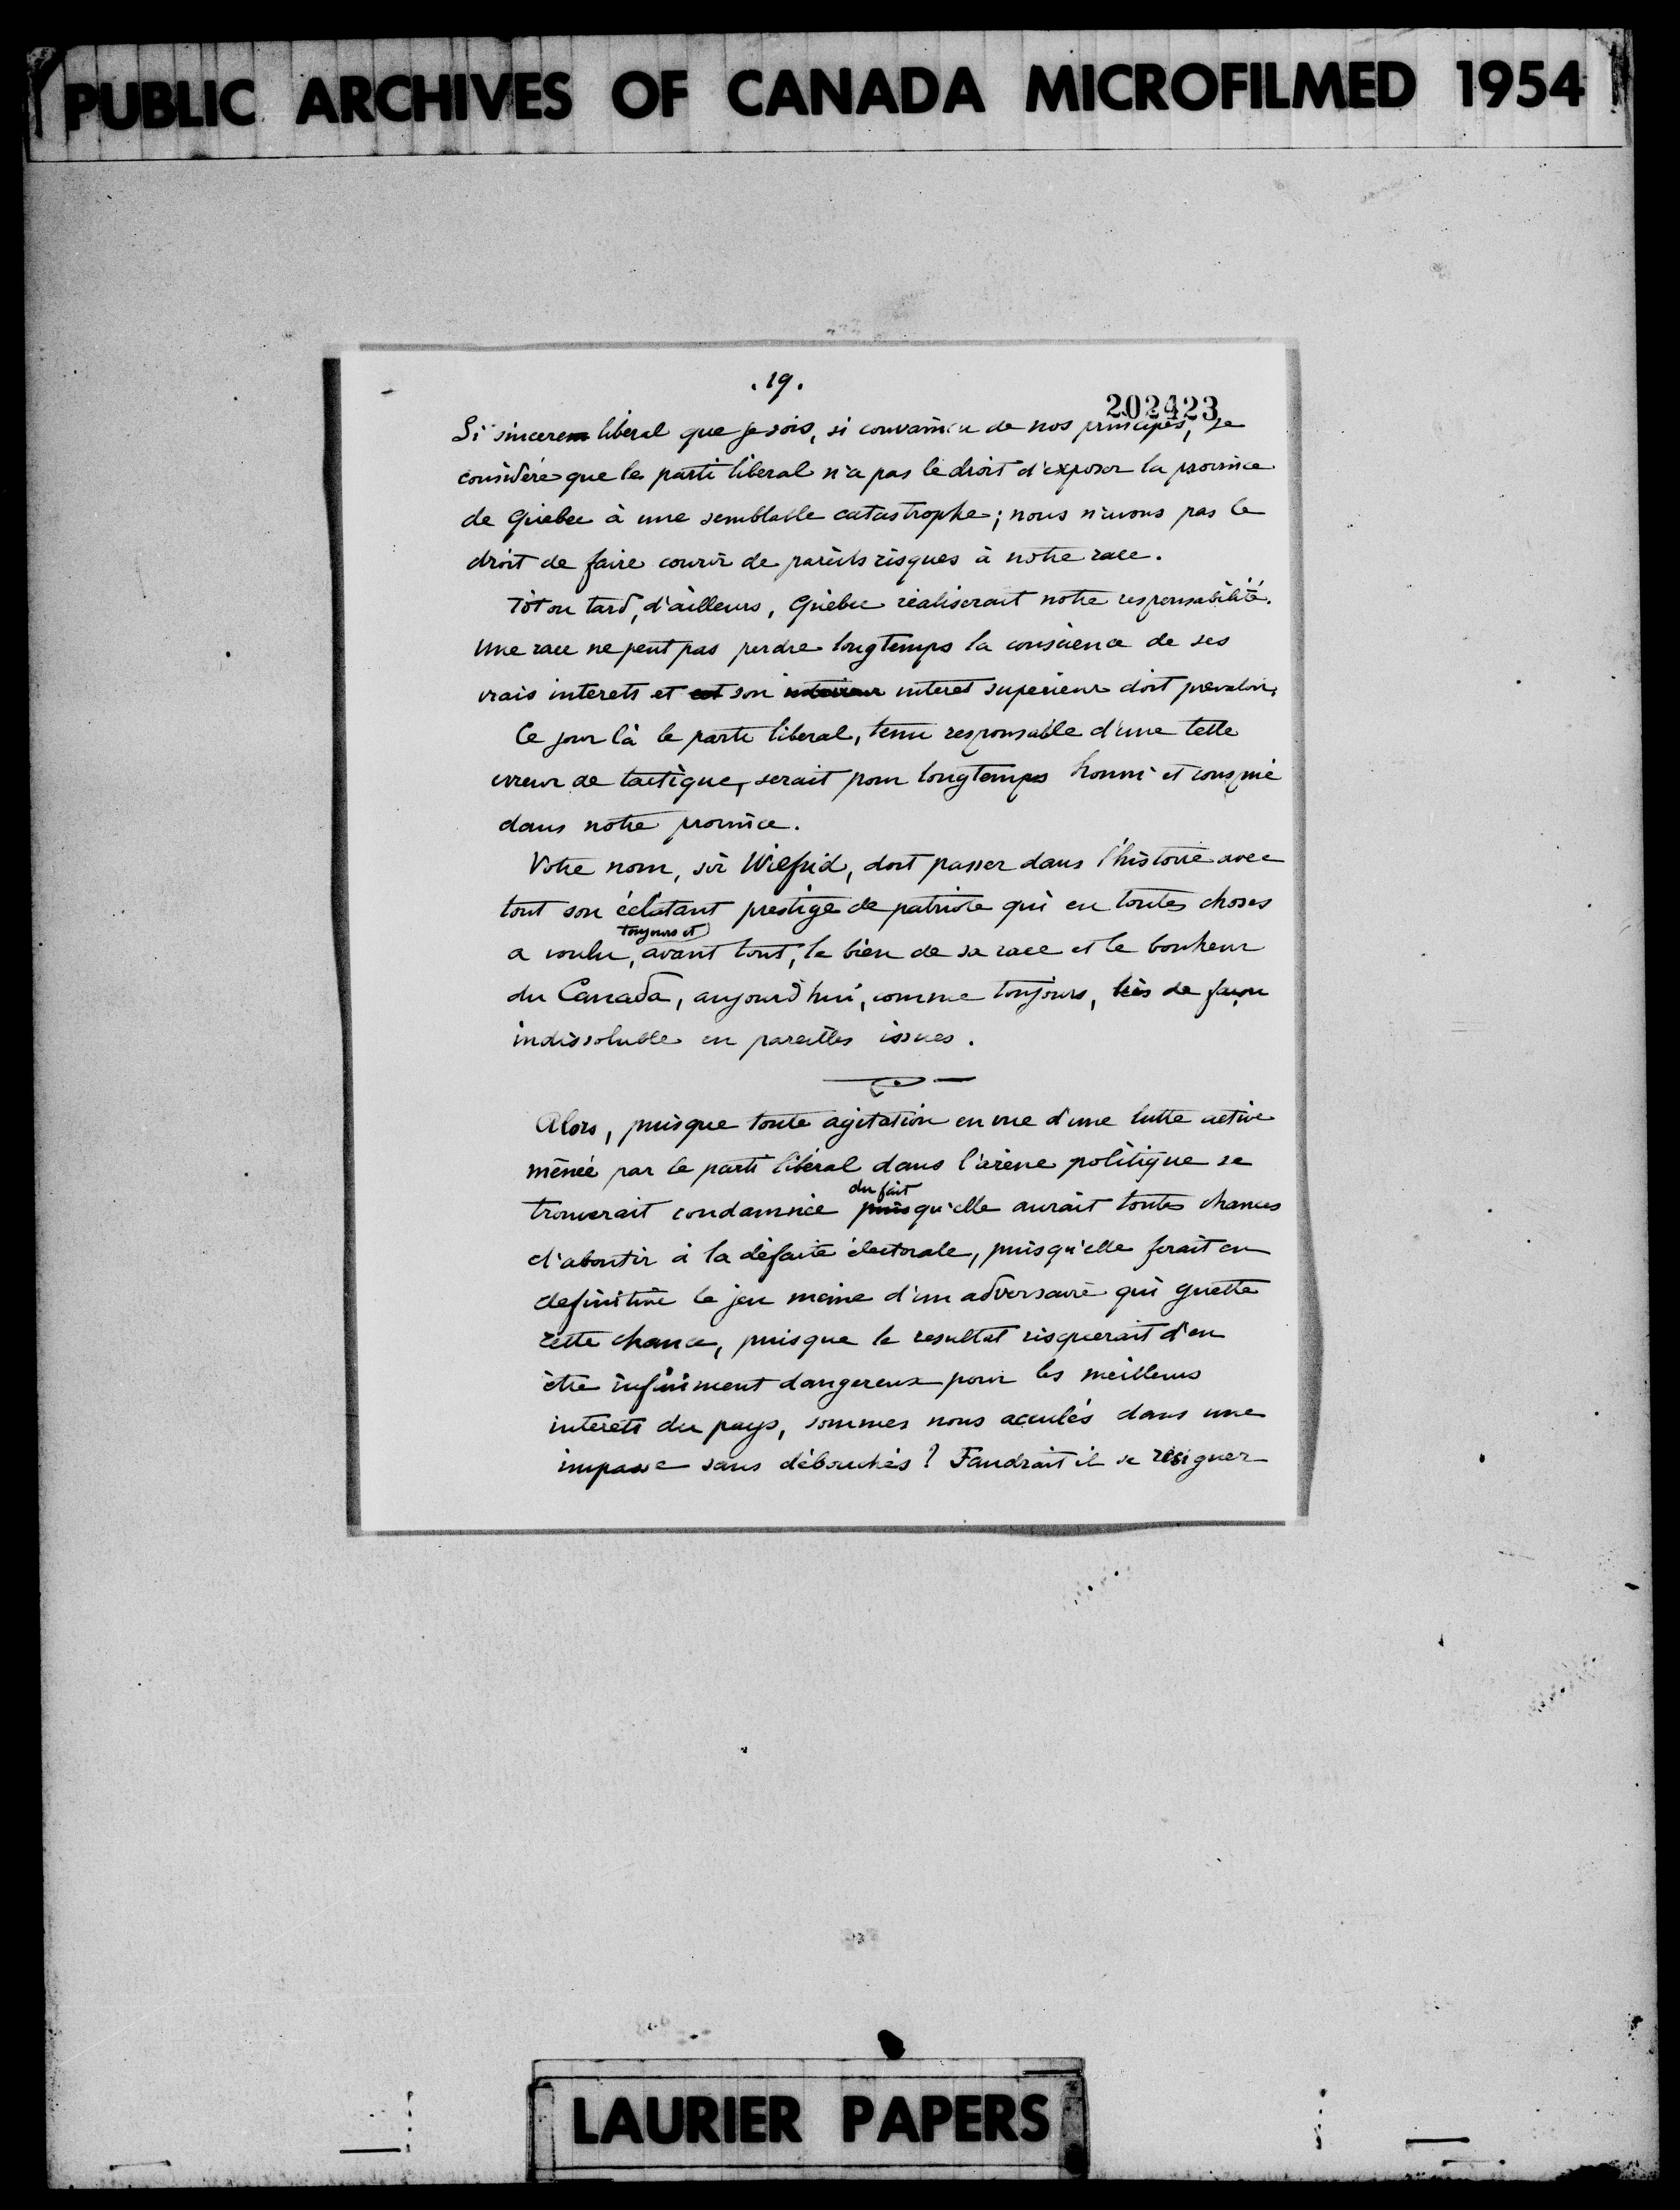 PUBLIC ARCHIVES OF CANADA MICROFILMED 1954
.19.
202423
Si sincere liberal que je sois, si convaincu de nos principes, je
considère que le parti liberal n'a pas le droit d'exposer la province
de Quebec à une semblable catastrophe; nous n'avons pas le
droit de faire courir de pareils risques à notre race.
Tôt ou tard, d'ailleurs, Québec réaliserait notre responsabilité.
Une race ne peut pas perdre longtemps la conscience de ses
vrais interets et est son interieur interet superieur doit prevaloir.
Ce jour là le parti liberal, tenu responsable d'une telle
erreur de tactique, serait pour longtemps honni et conspué
dans notre province.
Votre nom, sir Wilfrid, doit passer dans l'histoire avec
tout son éclatant prestige de patriote qui en toutes choses
toujours et
a voulu, avant tout, le bien de sa race et le bonheur
du Canada, aujourd'hui, comme toujours, liés de façon
indissoluble en pareilles issues.
Alors, puisque toute agitation en vue d'une lutte active
menée par le parti libéral dans l'arène politique se
du fait
trouverait condamnée puisqu'elle aurait toutes chances
d'aboutir à la défaite électorale, puisqu'elle ferait en
definitive le jeu meme d'un adversaire qui guette
cette chance, puisque le resultat risquerait d'en
être infiniment dangereux pour les meilleurs
interets du pays, sommes nous acculés dans une
impasse sans débouchés? Faudrait il se resigner
LAURIER PAPERS